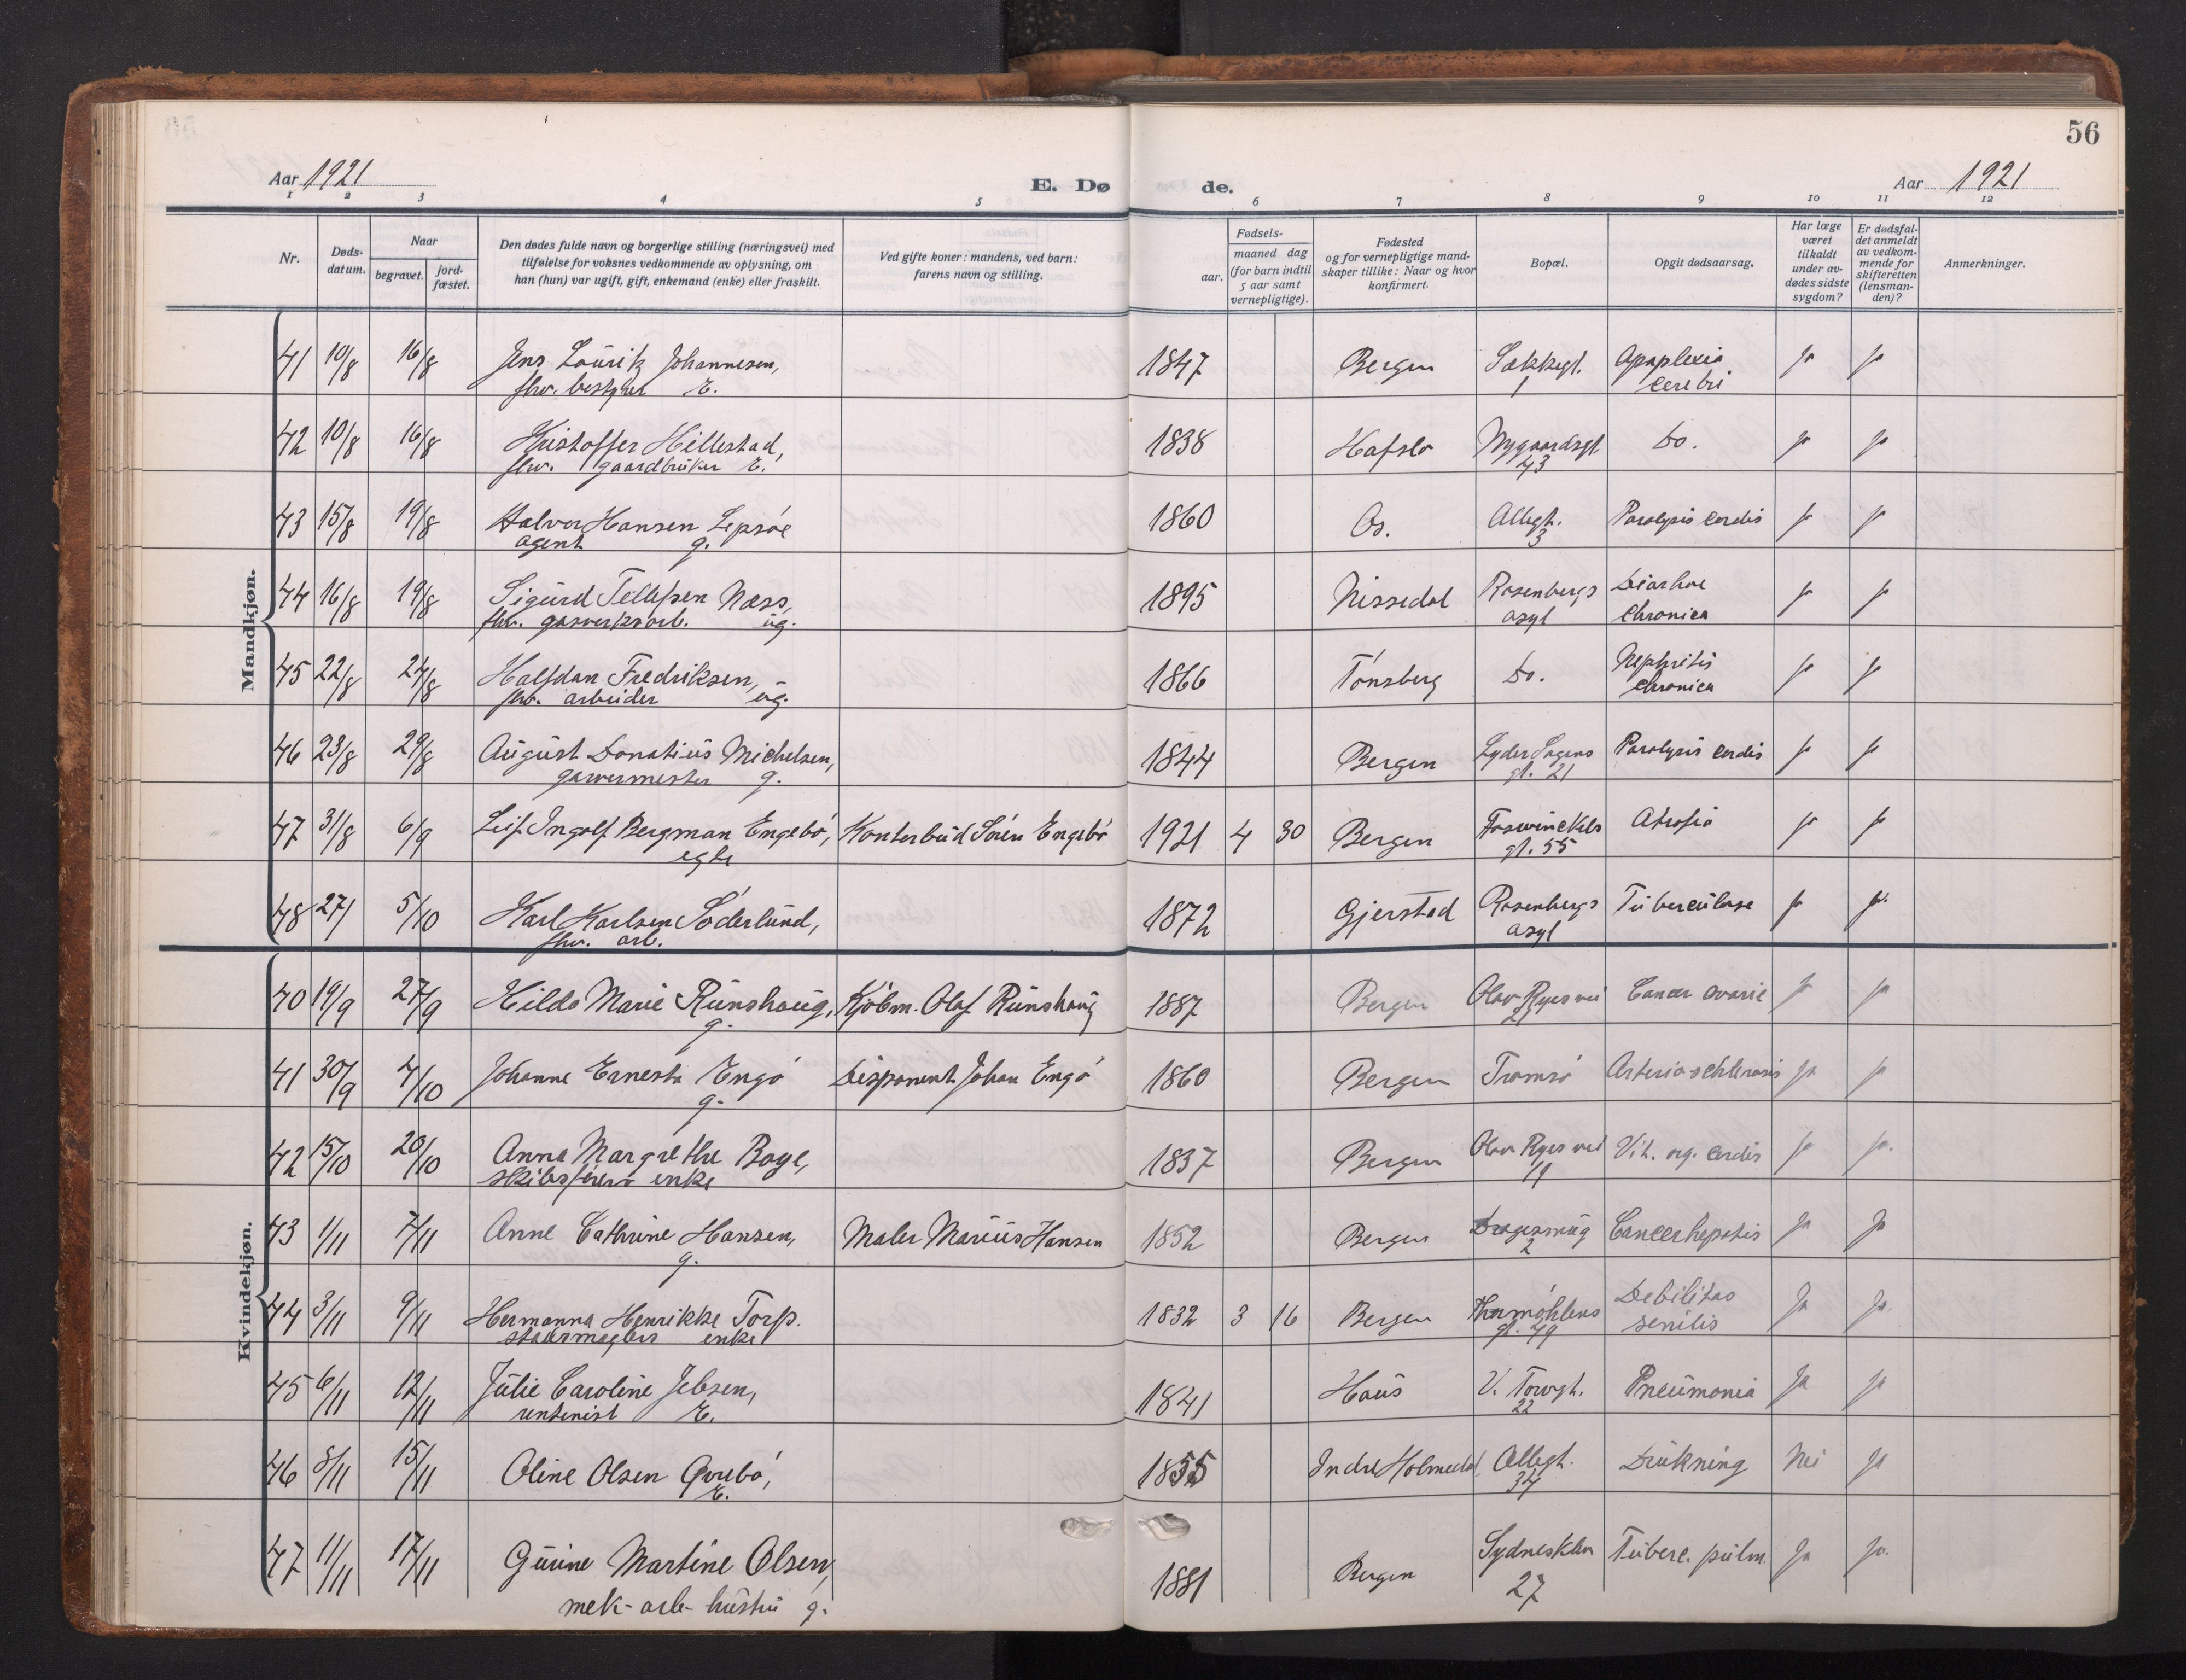 56
Aar 1921
E. Dø de.
Aar 1921
1 2 3 4 5 6 7 8 9 10 11 12
Nr.
Døds-
datum.
Naar
begravet.
jord-
fæstet.
Den dødes fulde navn og borgerlige stilling (næringsvei) med
tilføielse for voksnes vedkommende av oplysning, om
han (hun) var ugift, gift, enkemand (enke) eller fraskilt.
Ved gifte koner: mandens, ved barn:
farens navn og stilling.
Fødsels-
aar.
maaned dag
(for barn indtil
5 aar samt
vernepligtige).
Fødested
og for vernepligtige mand-
skaper tillike: Naar og hvor
konfirmert.
Bopæl.
Opgit dødsaarsag.
Har læge
været
tilkaldt
under av-
dødes sidste
sygdom?
Er dødsfal-
det anmeldt
av vedkom-
mende for
skifteretten
(lensman-
den)?
Anmerkninger.
Mandkjøn.
41 10/8 16/8 Jens Lauritz Johannesen, 1847 Bergen Sekkegt. Apoplexia ja ja
fhv. bestyrer E. 1 cerebri
42 10/8 16/8 Kristoffer Hillestad, 1838 Hafslo Nygaardsgt Do. ja ja
fhv. gaardbruker E. 43
43 15/8 19/8 Halvor Hansen Lepsöe 1860 Os. Allegt. Paralysis cordis ja ja
agent g. 3
44 16/8 19/8 Sigurd Tellefsen Næss, 1895 Nissedal Rosenbergs Diarhoe ja ja
fhv. gasverksarb. ug. asyl chronica
45 22/8 24/8 Halfdan Fredriksen, 1866 Tönsberg Do. Nephritis ja ja
fhv. arbeider ug. chronica
46 23/8 29/8 August Donatius Michelsen, 1844 Bergen Lyder Sagens Paralysis cordis ja ja
garvermester g. gt. 21
47 31/8 6/9 Leif Ingolf Bergman Engebö, Kontorbud Sören Engebö 1921 4 30 Bergen Foswinckels Atrofia ja ja
egte gt. 55
48 27/ 5/10 Karl Karlsen Söderlund, 1872 Gjerstad Rosenbergs Tuberculose ja ja.
fhv. arb. asyl
Kvindekjøn.
40 19/9 27/9 Hilda Marie Runshaug, Kjöbm. Olaf Runshaug 1887 Bergen Olav Ryes vei Cancer ovarie ja ja
g. 21
41 30/9 4/10 Johanne Ernesta Engö Disponent Johan Engö 1860 Bergen Tromsö Arterio-schlerosis ja ja
g.
42 15/10 20/10 Anna Margrethe Boye, 1837 Bergen Olav Ryes vei Vit. org. cordis ja ja.
skibsförers enke 19
43 1/11 7/11 Anne Cathrine Hansen, Maler Marius Hansen 1852 Bergen Dragesmug Cancer hepatis ja ja
g. 2
44 3/11 9/11 Hermanna Henrikke Torp. 1832 3 16 Bergen Thormöhlens Debilitas Ja Ja.
enke gt. 49 senilis
45 6/11 12/11 Julie Caroline Jebsen, 1841 Haus V. Torvgt. Pneumonia Ja ja
rentenist E. 22
46 8/11 15/11 Oline Olsen Qvebö, 1855 Indre Holmedal Allegt. Drukning Nei ja
E. 34
47 11/11 17/11 Gurine Martine Olsen, 1881 Bergen Sydneskln Tuberc. pulm. Ja ja.
mek-arb-hustru g. 27